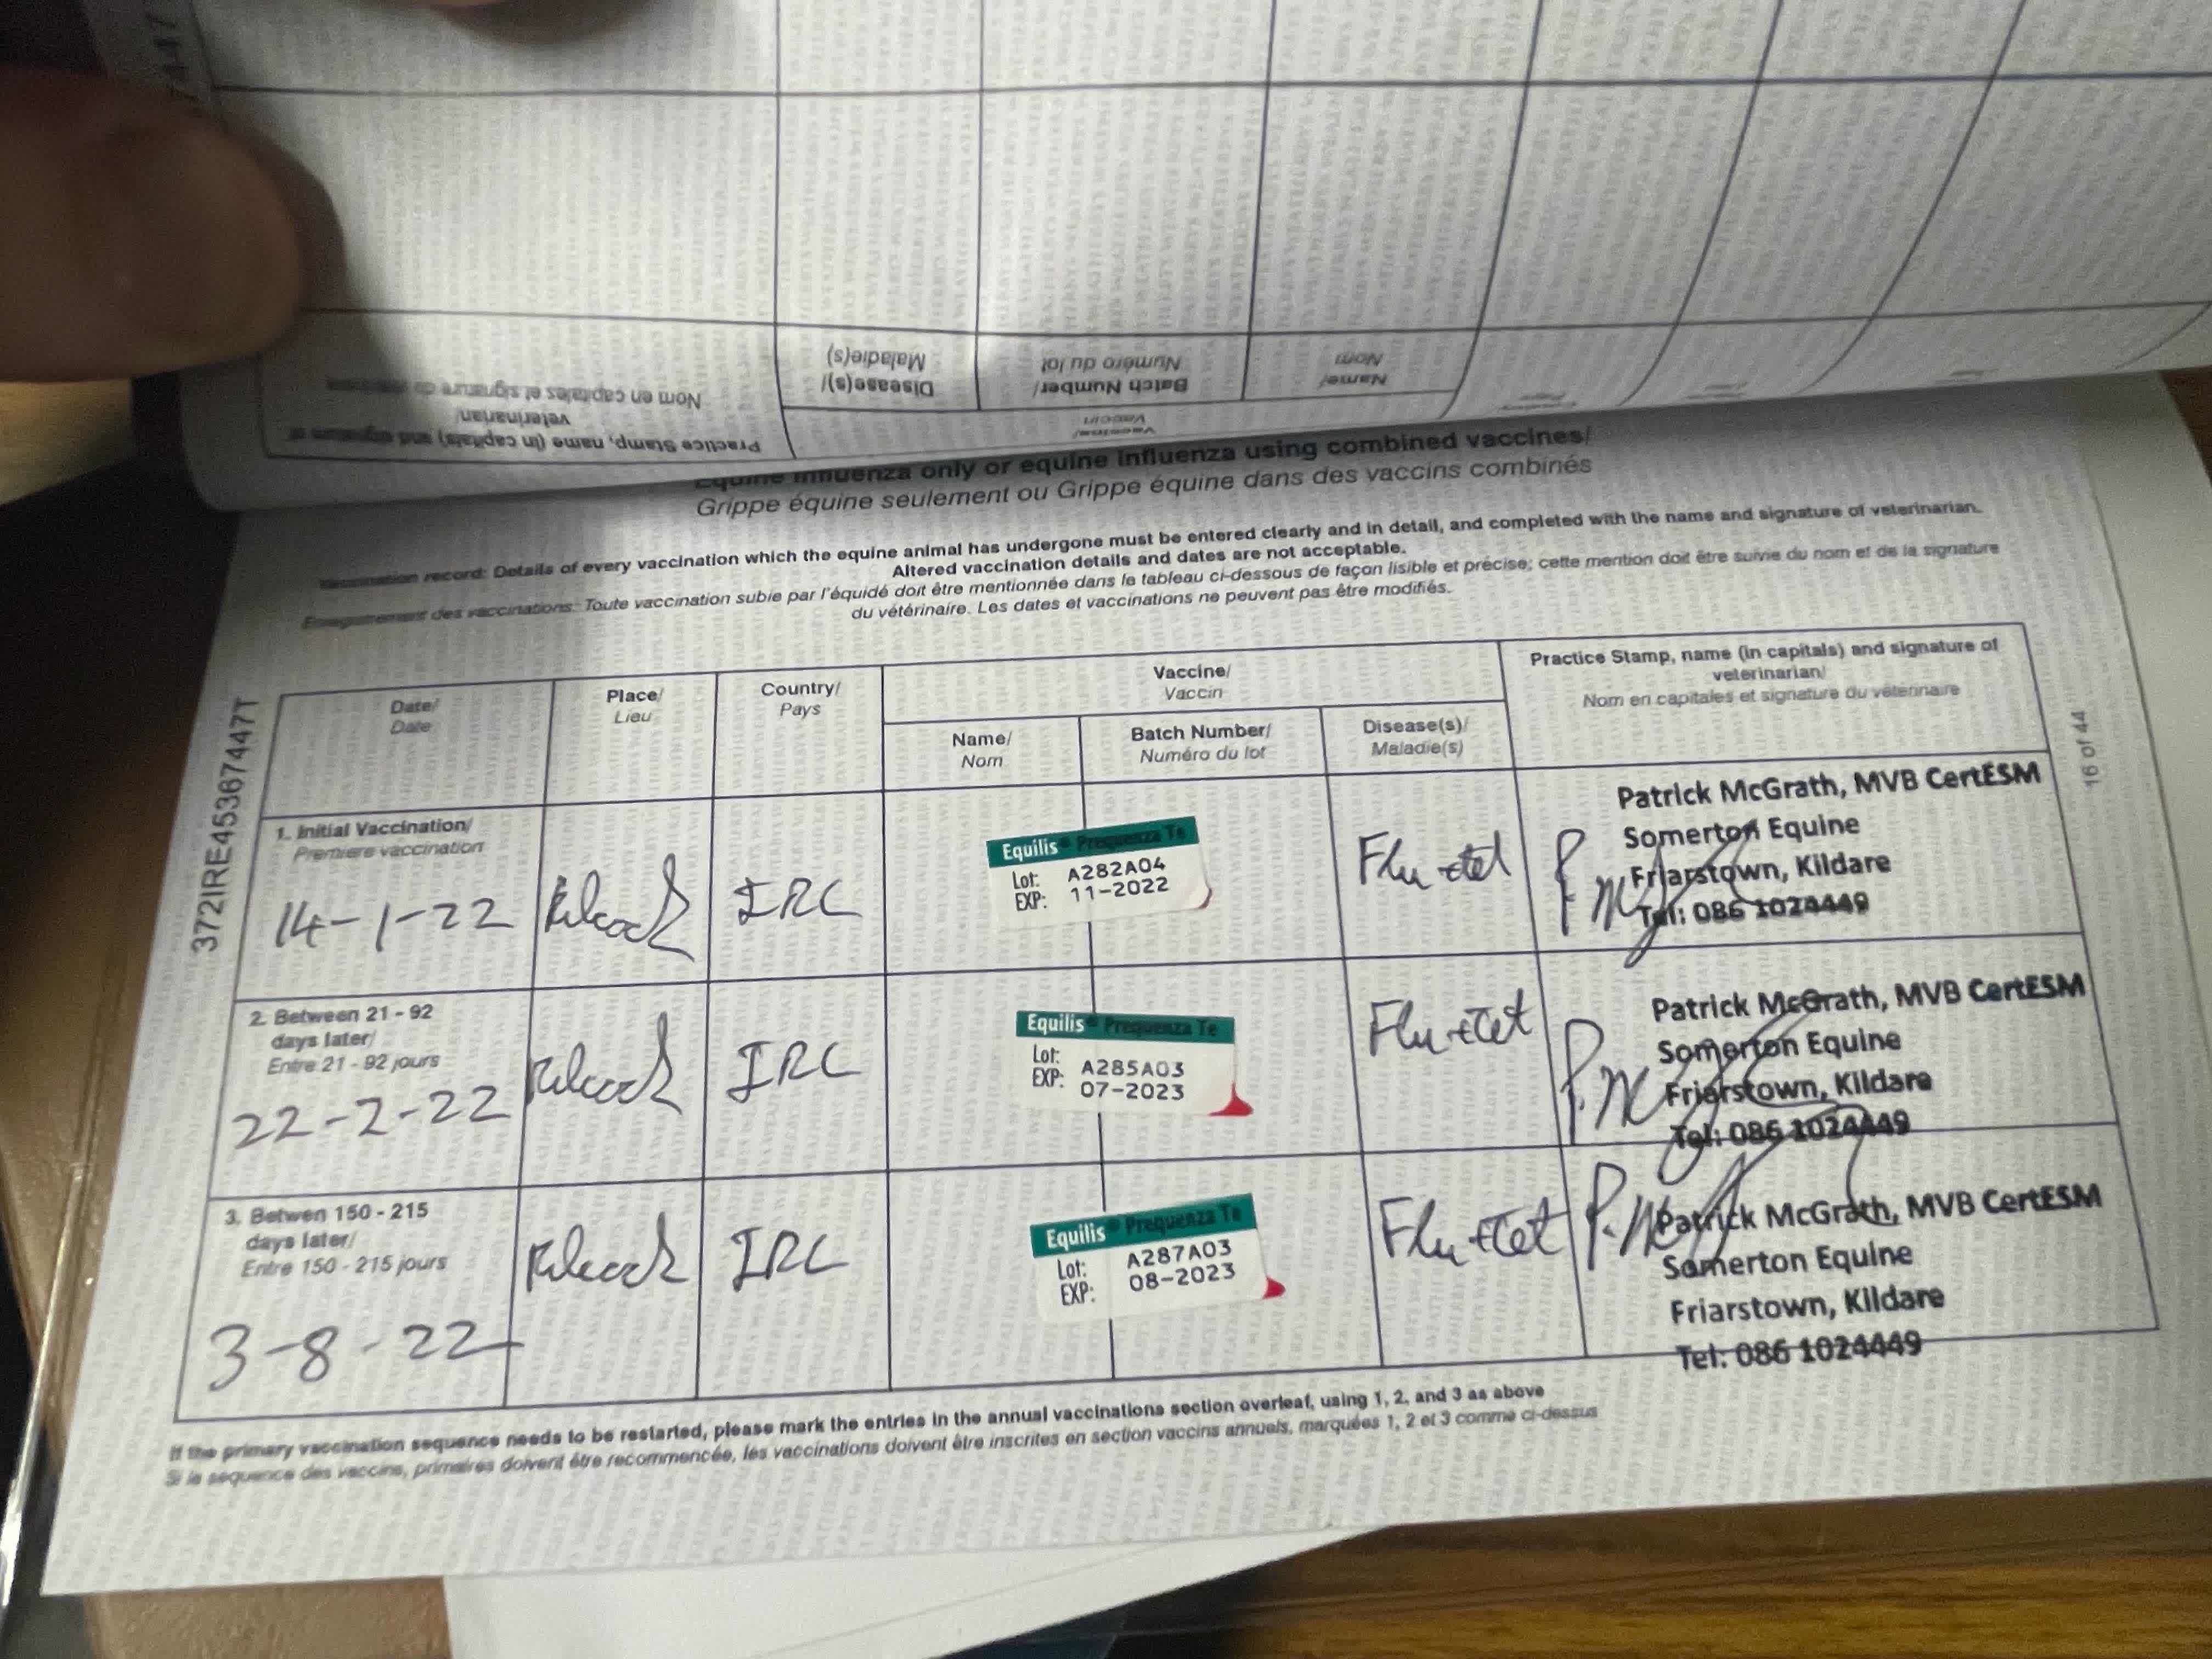 Practice Stamp, name (in capitals) and signature of
veterinarian/
Nom en capitales et signature du
Disease(s)/
Maladie(s)
Batch Number/
Numéro du lot
Name/
Nom
Vaccine/
Vaccin
Equine influenza only or equine influenza using combined vaccines/
Grippe équine seulement ou Grippe équine dans des vaccins combinés
Vaccination record: Details of every vaccination which the equine animal has undergone must be entered clearly and in detail, and completed with the name and signature of veterinarian.
Altered vaccination details and dates are not acceptable.
Enregistrement des vaccinations: Toute vaccination subie par l'équidé doit être mentionnée dans le tableau ci-dessous de façon lisible et précise; cette mention doit être suivie du nom et de la signature
du vétérinaire. Les dates et vaccinations ne peuvent pas être modifiés.
372IRE45367447T
16 of 44
Date/
Date
Place/
Lieu
Country/
Pays
Vaccine/
Vaccin
Name/
Nom
Batch Number/
Numéro du lot
Disease(s)/
Maladie(s)
Practice Stamp, name (in capitals) and signature of
veterinarian/
Nom en capitales et signature du vétérinaire
1. Initial Vaccination/
Premiere vaccination
14-1-22
Kilcock
IRL
Equilis® Prequenza Te
Lot: A282A04
EXP: 11-2022
Flu+tet
Patrick McGrath, MVB CertESM
Somerton Equine
Friarstown, Kildare
Tel: 086 1024449
2. Between 21 - 92
days later/
Entre 21 - 92 jours
22-2-22
Kilcock
IRL
Equilis® Prequenza Te
Lot: A285A03
EXP: 07-2023
Flu+Tet
Patrick McGrath, MVB CertESM
Somerton Equine
Friarstown, Kildare
Tel: 086 1024449
3. Betwen 150 - 215
days later/
Entre 150 - 215 jours
3-8-22
Kilcock
IRL
Equilis® Prequenza Te
Lot: A287A03
EXP: 08-2023
Flu+Tet
Patrick McGrath, MVB CertESM
Somerton Equine
Friarstown, Kildare
Tel: 086 1024449
If the primary vaccination sequence needs to be restarted, please mark the entries in the annual vaccinations section overleaf, using 1, 2, and 3 as above
Si la séquence des vaccins, primaires doivent être recommencée, les vaccinations doivent être inscrites en section vaccins annuels, marquées 1, 2 et 3 comme ci-dessus